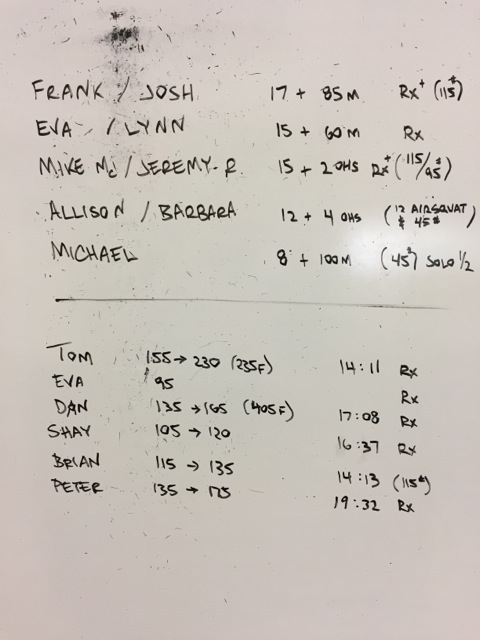 FRANK / JOSH 17 + 85M Rx+ (115#)
EVA / LYNN 15 + 60M Rx
MIKE Mc / JEREMY R. 15 + 2 OHS Rx+ (115/95#)
ALLISON / BARBARA 12 + 4 OHS (12 AIRSQUAT & 45#)
MICHAEL 8 + 100M (45#) SOLO 1/2
TOM 155 → 230 (235F) 14:11 Rx
EVA 95 Rx
DAN 135 → 165 (405F) 17:08 Rx
SHAY 105 → 120 16:37 Rx
BRIAN 115 → 135 14:13 (115#)
PETER 135 → 175 19:32 Rx